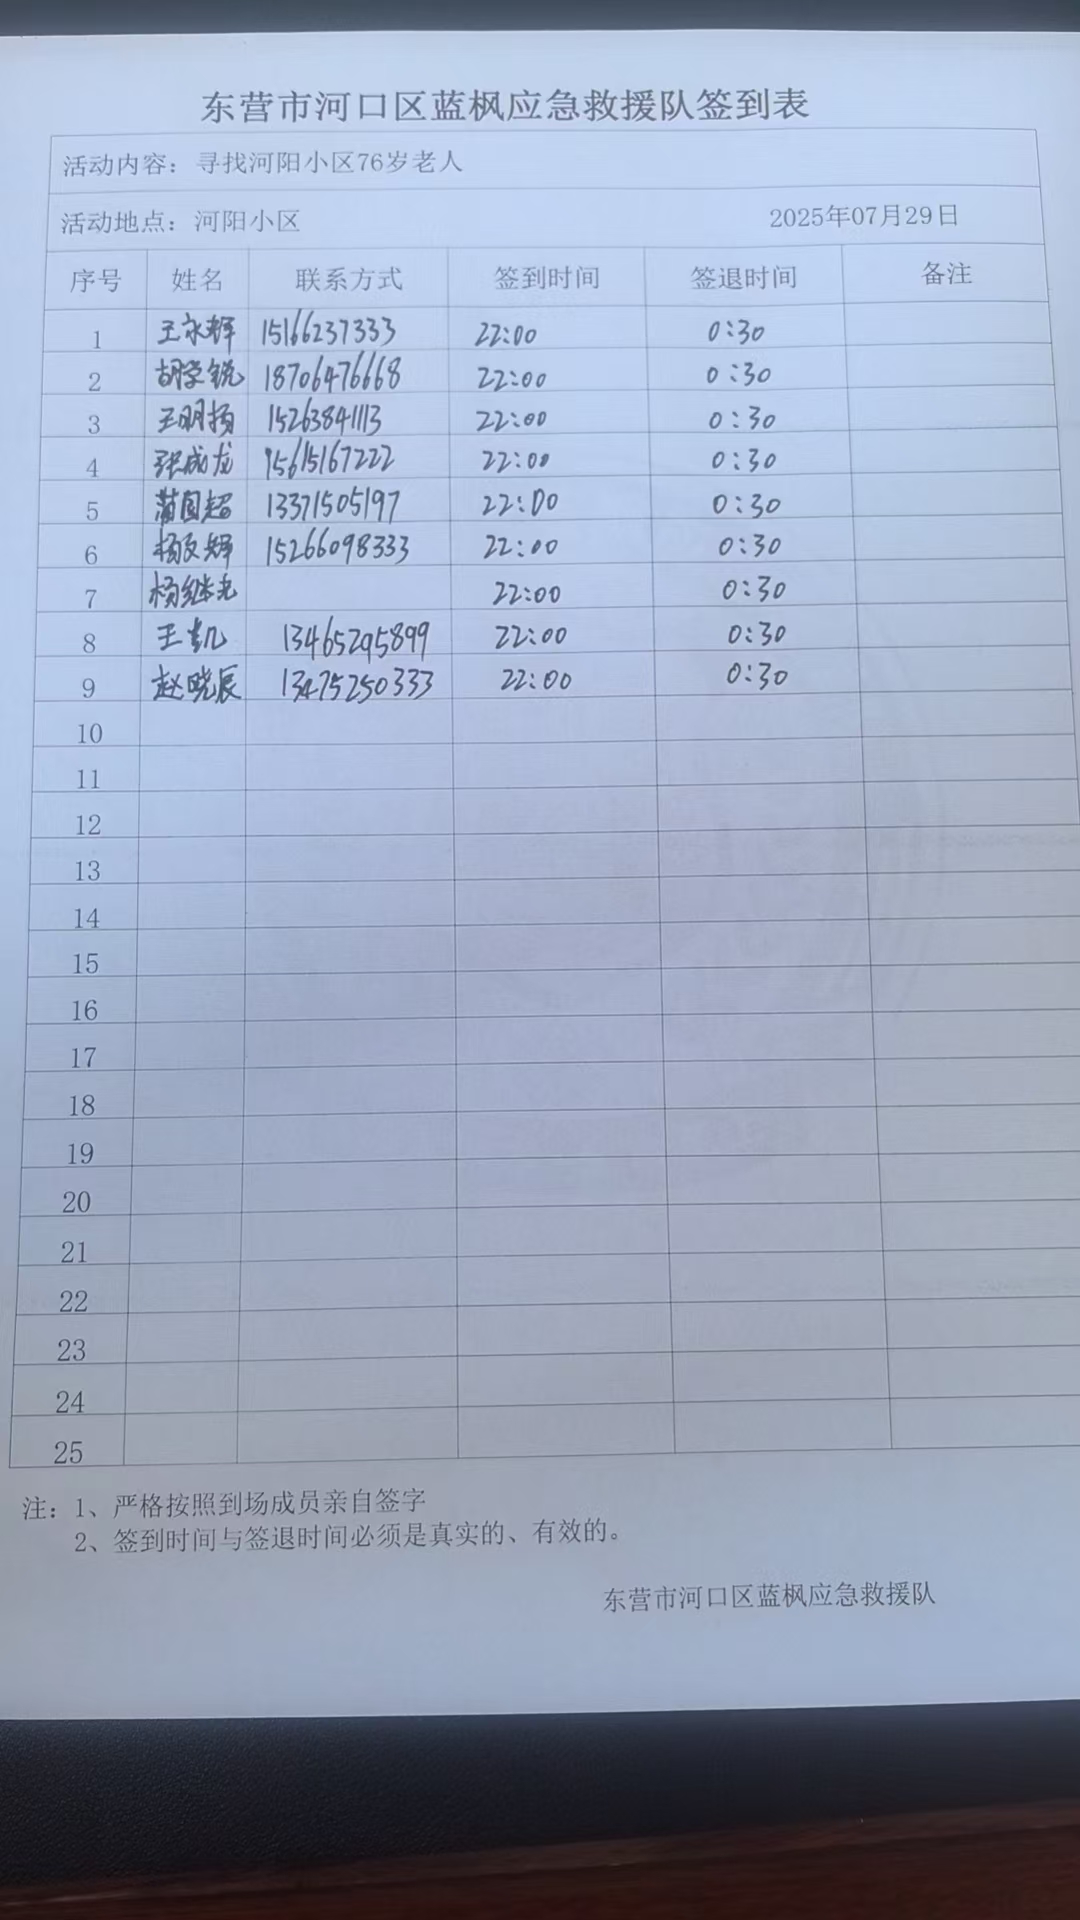 东营市河口区蓝枫应急救援队签到表
活动内容：寻找河阳小区76岁老人
活动地点：河阳小区 2025年07月29日
序号 姓名 联系方式 签到时间 签退时间 备注
1 王永辉 15166237333 22:00 0:30
2 胡学锐 18706476668 22:00 0:30
3 王明扬 15263841113 22:00 0:30
4 张成龙 15615167222 22:00 0:30
5 蒲国超 13371505197 22:00 0:30
6 杨文辉 15266098333 22:00 0:30
7 杨继光 22:00 0:30
8 王凯 13465295899 22:00 0:30
9 赵晓辰 13475250333 22:00 0:30
10
11
12
13
14
15
16
17
18
19
20
21
22
23
24
25
注：1、严格按照到场成员亲自签字
2、签到时间与签退时间必须是真实的、有效的。
东营市河口区蓝枫应急救援队